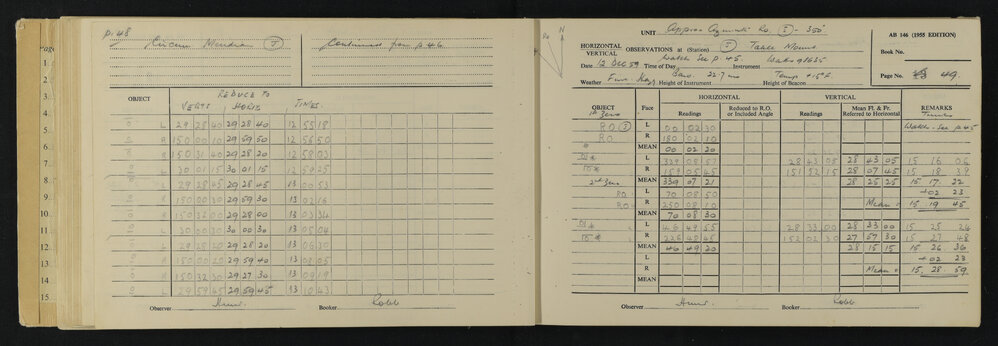 p. 48
Circum Meridian
Continued from p 46
OBJECT
REDUCE TO
VERTS HORIZ TIMES
L 29 28 40 29 28 40 12 55 18
R 150 00 10 29 59 50 12 56 50
R 150 31 40 29 28 20 12 58 03
L 30 01 15 30 01 15 12 59 25
L 29 28 45 29 28 45 13 00 53
R 150 00 30 29 59 30 13 02 16
R 150 32 00 29 28 00 13 03 34
L 30 00 30 30 00 30 13 05 04
L 29 28 20 29 28 20 13 06 30
R 150 00 20 29 59 40 13 08 05
R 150 32 30 29 27 30 13 09 19
L 29 59 45 29 59 45 13 10 43
Observer Booker Robb
3.
4.
5.
6.
7.
8.
9.
10.
11.
12.
13.
14.
15.
N
RO
UNIT Approx Azimuth Ro. 350°
AB 146 (1955 EDITION)
HORIZONTAL
VERTICAL
OBSERVATIONS at (Station) Table Mount
Book No.
Date 12 Dec 59 Time of Day Watch See P 45 Instrument
Page No. 49.
Weather Fine Height of Instrument Baro. 22.7 Height of Beacon Temp
OBJECT Face HORIZONTAL VERTICAL REMARKS
Readings Reduced to R.O. or Included Angle Readings Mean Fl. & Fr. Referred to Horizontal
1st Zero Watch - See p 45
RO L 00 02 30
RO R 180 02 10
MEAN 00 02 20
L 339 08 57 28 43 05 28 43 05 15 16 06
R 159 05 45 151 52 15 28 07 45 15 18 38
MEAN 339 07 21 28 25 25 15 17 22
2nd Zero
RO L 70 08 50 +02 23
RO R 250 08 10 Mean = 15 19 45
MEAN 70 08 30
L 46 49 55 28 33 00 28 33 00 15 25 24
R 226 48 45 152 02 30 27 57 30 15 27 48
MEAN 46 49 20 28 15 15 15 26 36
L +02 23
R Mean = 15 28 59
MEAN
Observer Booker Robb